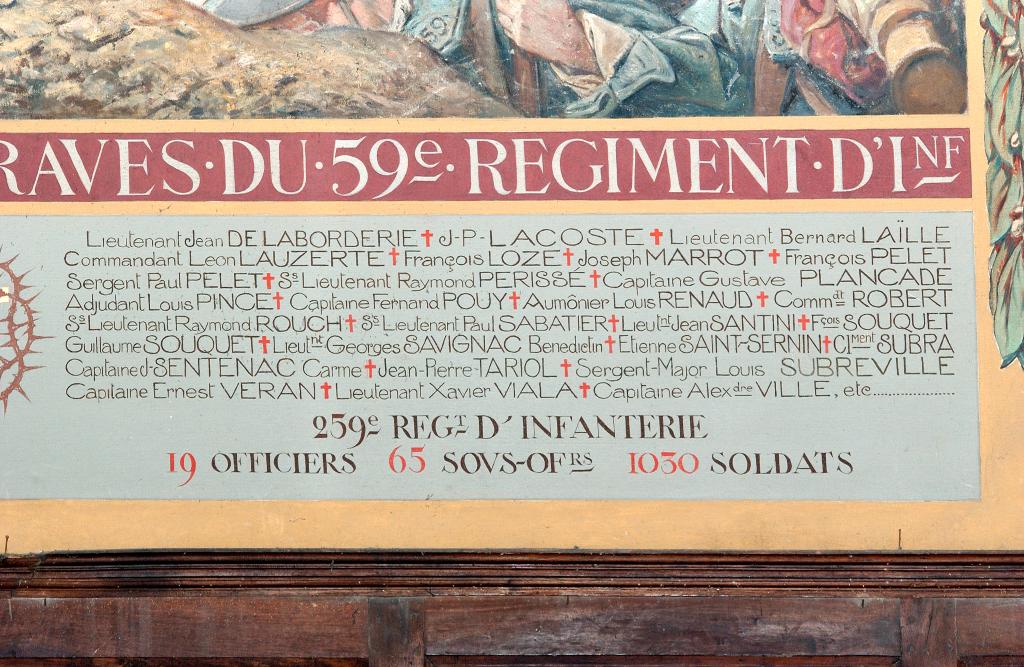 RAVES·DU·59e·REGIMENT·D'INF
Lieutenant Jean DE LABORDERIE † J-P-LACOSTE † Lieutenant Bernard LAÏLLE
Commandant Leon LAUZERTE † François LOZE † Joseph MARROT † François PELET
Sergent Paul PELET † Ss Lieutenant Raymond PERISSÉ † Capitaine Gustave PLANCADE
Adjudant Louis PINCE † Capitaine Fernand POUY † Aumônier Louis RENAUD † Commdt ROBERT
Ss Lieutenant Raymond ROUCH † Ss Lieutenant Paul SABATIER † Lieutnt Jean SANTINI † Fçois SOUQUET
Guillaume SOUQUET † Lieutnt Georges SAVIGNAC Benedictin † Etienne SAINT-SERNIN † Clment SUBRA
Capitaine J-SENTENAC Carme † Jean-Pierre-TARIOL † Sergent-Major Louis SUBREVILLE
Capitaine Ernest VERAN † Lieutenant Xavier VIALA † Capitaine Alexdre VILLE, etc....................
259e REGT D'INFANTERIE
19 OFFICIERS 65 SOVS-OFRS 1030 SOLDATS